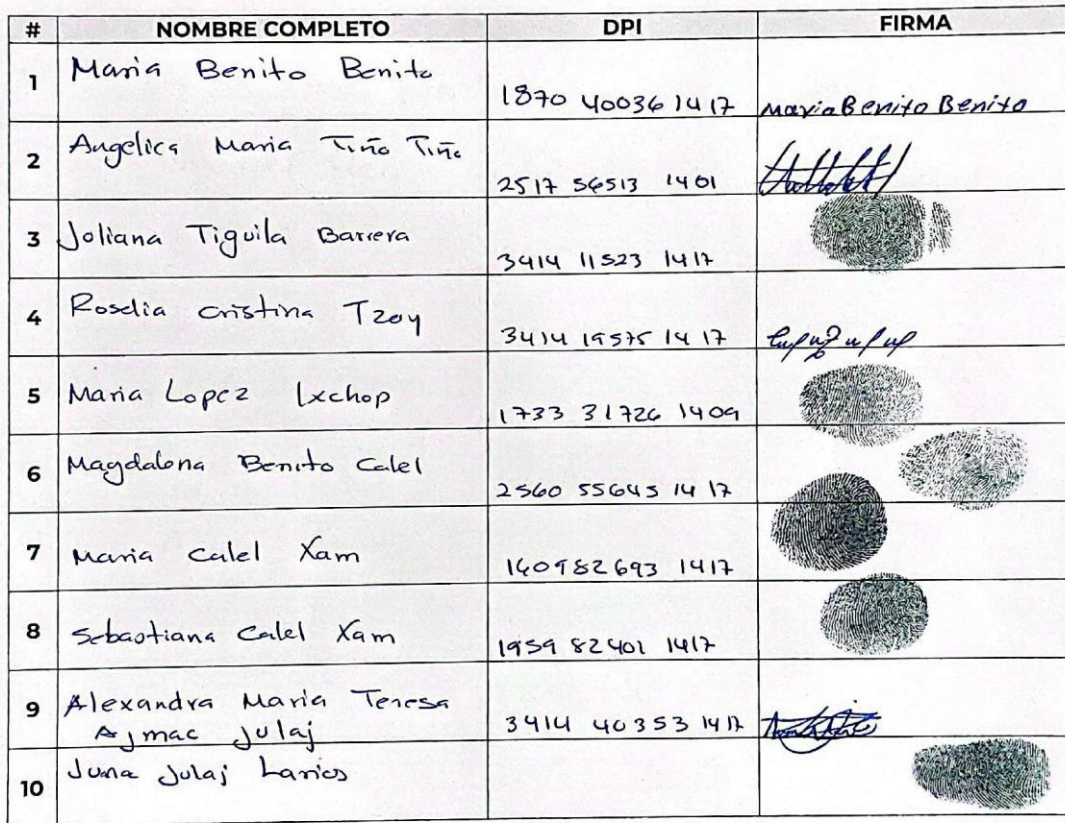 # NOMBRE COMPLETO DPI FIRMA
1 Maria Benito Benito 1870 40036 1417 Maria Benito Benito
2 Angelica Maria Tiño Tiño 2517 56513 1401
3 Joliana Tiguila Barrera 3414 11523 1417
4 Roselia Cristina Tzoy 3414 19575 1417
5 Maria Lopez Ixchop 1733 31726 1409
6 Magdalena Benito Calel 2560 55645 1417
7 Maria Calel Xam 1609 82693 1417
8 Sebastiana Calel Xam 1959 82401 1417
9 Alexandra Maria Teresa
Ajmac Julaj 3414 40353 1417
10 Juna Julaj Larios